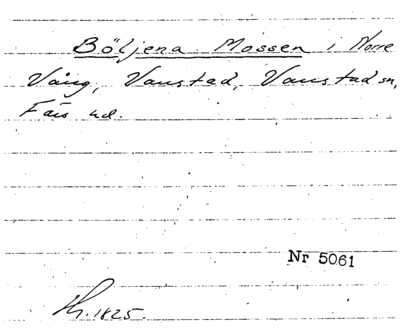 Böljena Mossen i Norre
Vång, Vanstad, Vanstad sn,
Färs hd.
Nr 5061
1825.